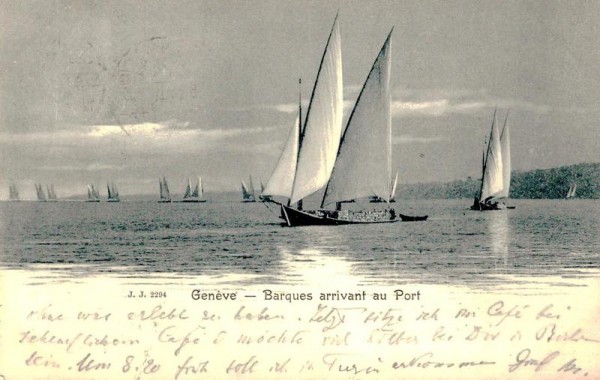 J. J. 2294 Genève — Barques arrivant au Port
ohne was erlebt zu haben. Jetzt sitze ich im Café bei
Café u möchte viel lieber bei Dir in Berlin
sein. Um 8.20 früh soll ich in Turin ankommen